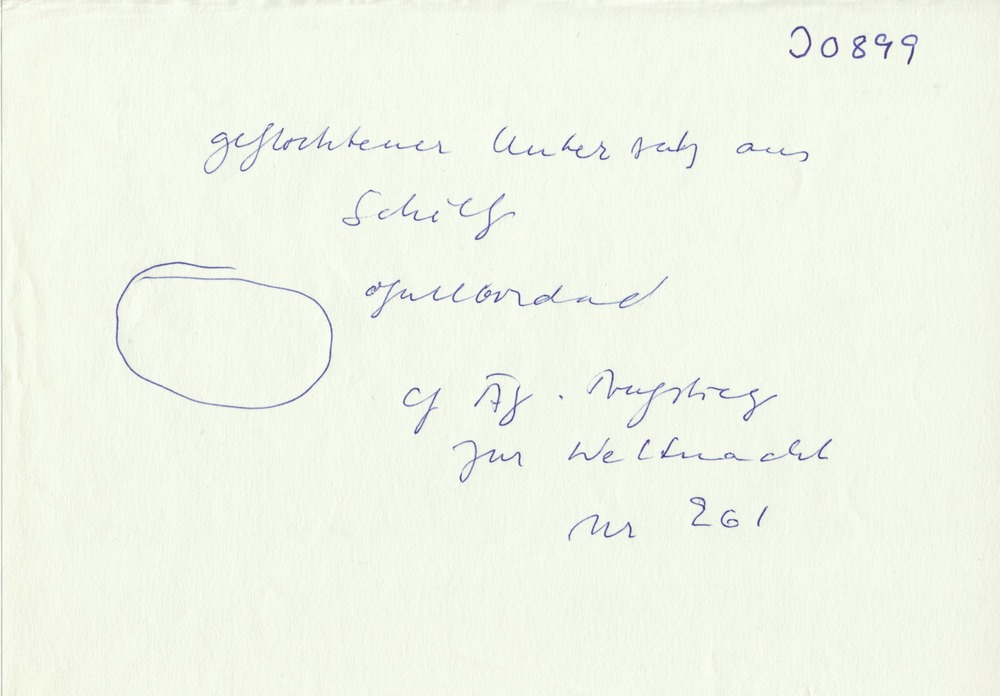 J0899
geflochtener Untersatz aus
Schilf
cf Äg. Aufstieg
zur Weltmacht
Nr 261